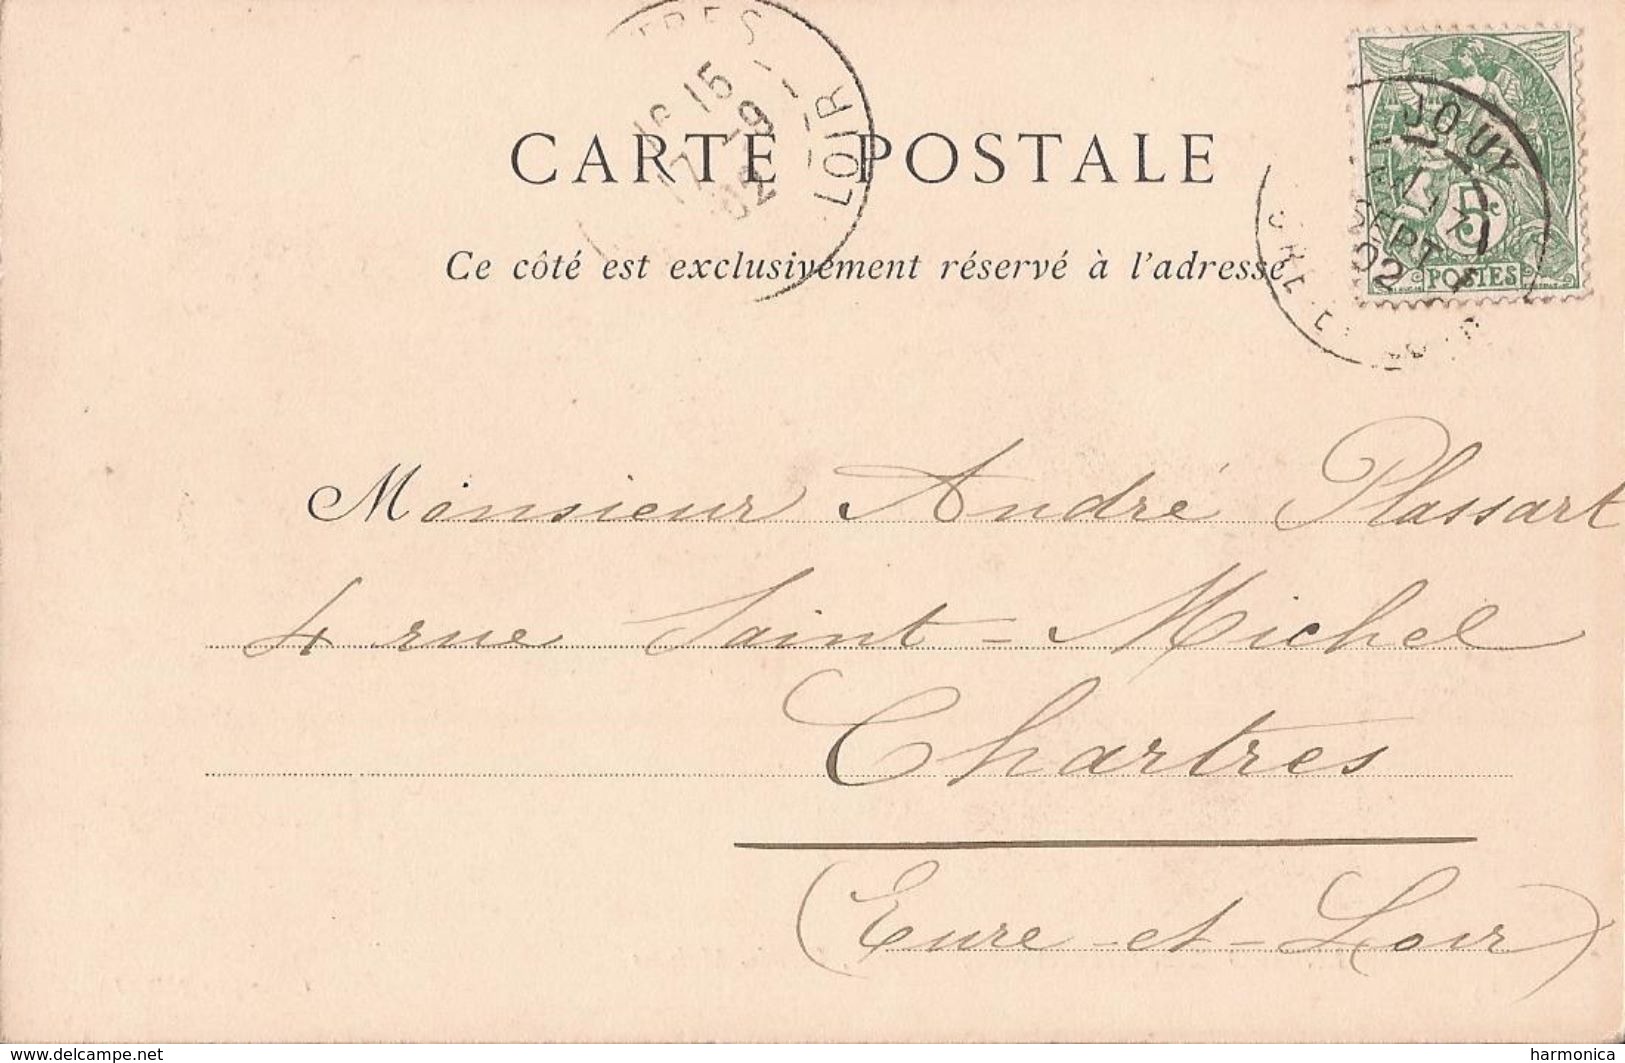 CARTE POSTALE
Ce côté est exclusivement réservé à l'adresse
TRES
16 15
17 -9
02
LOIR
JOUY
17
SEPT
02
5
POSTES
Monsieur André Plassart
4 rue Saint-Michel
Chartres
(Eure-et-Loir)
www.delcampe.net
harmonica